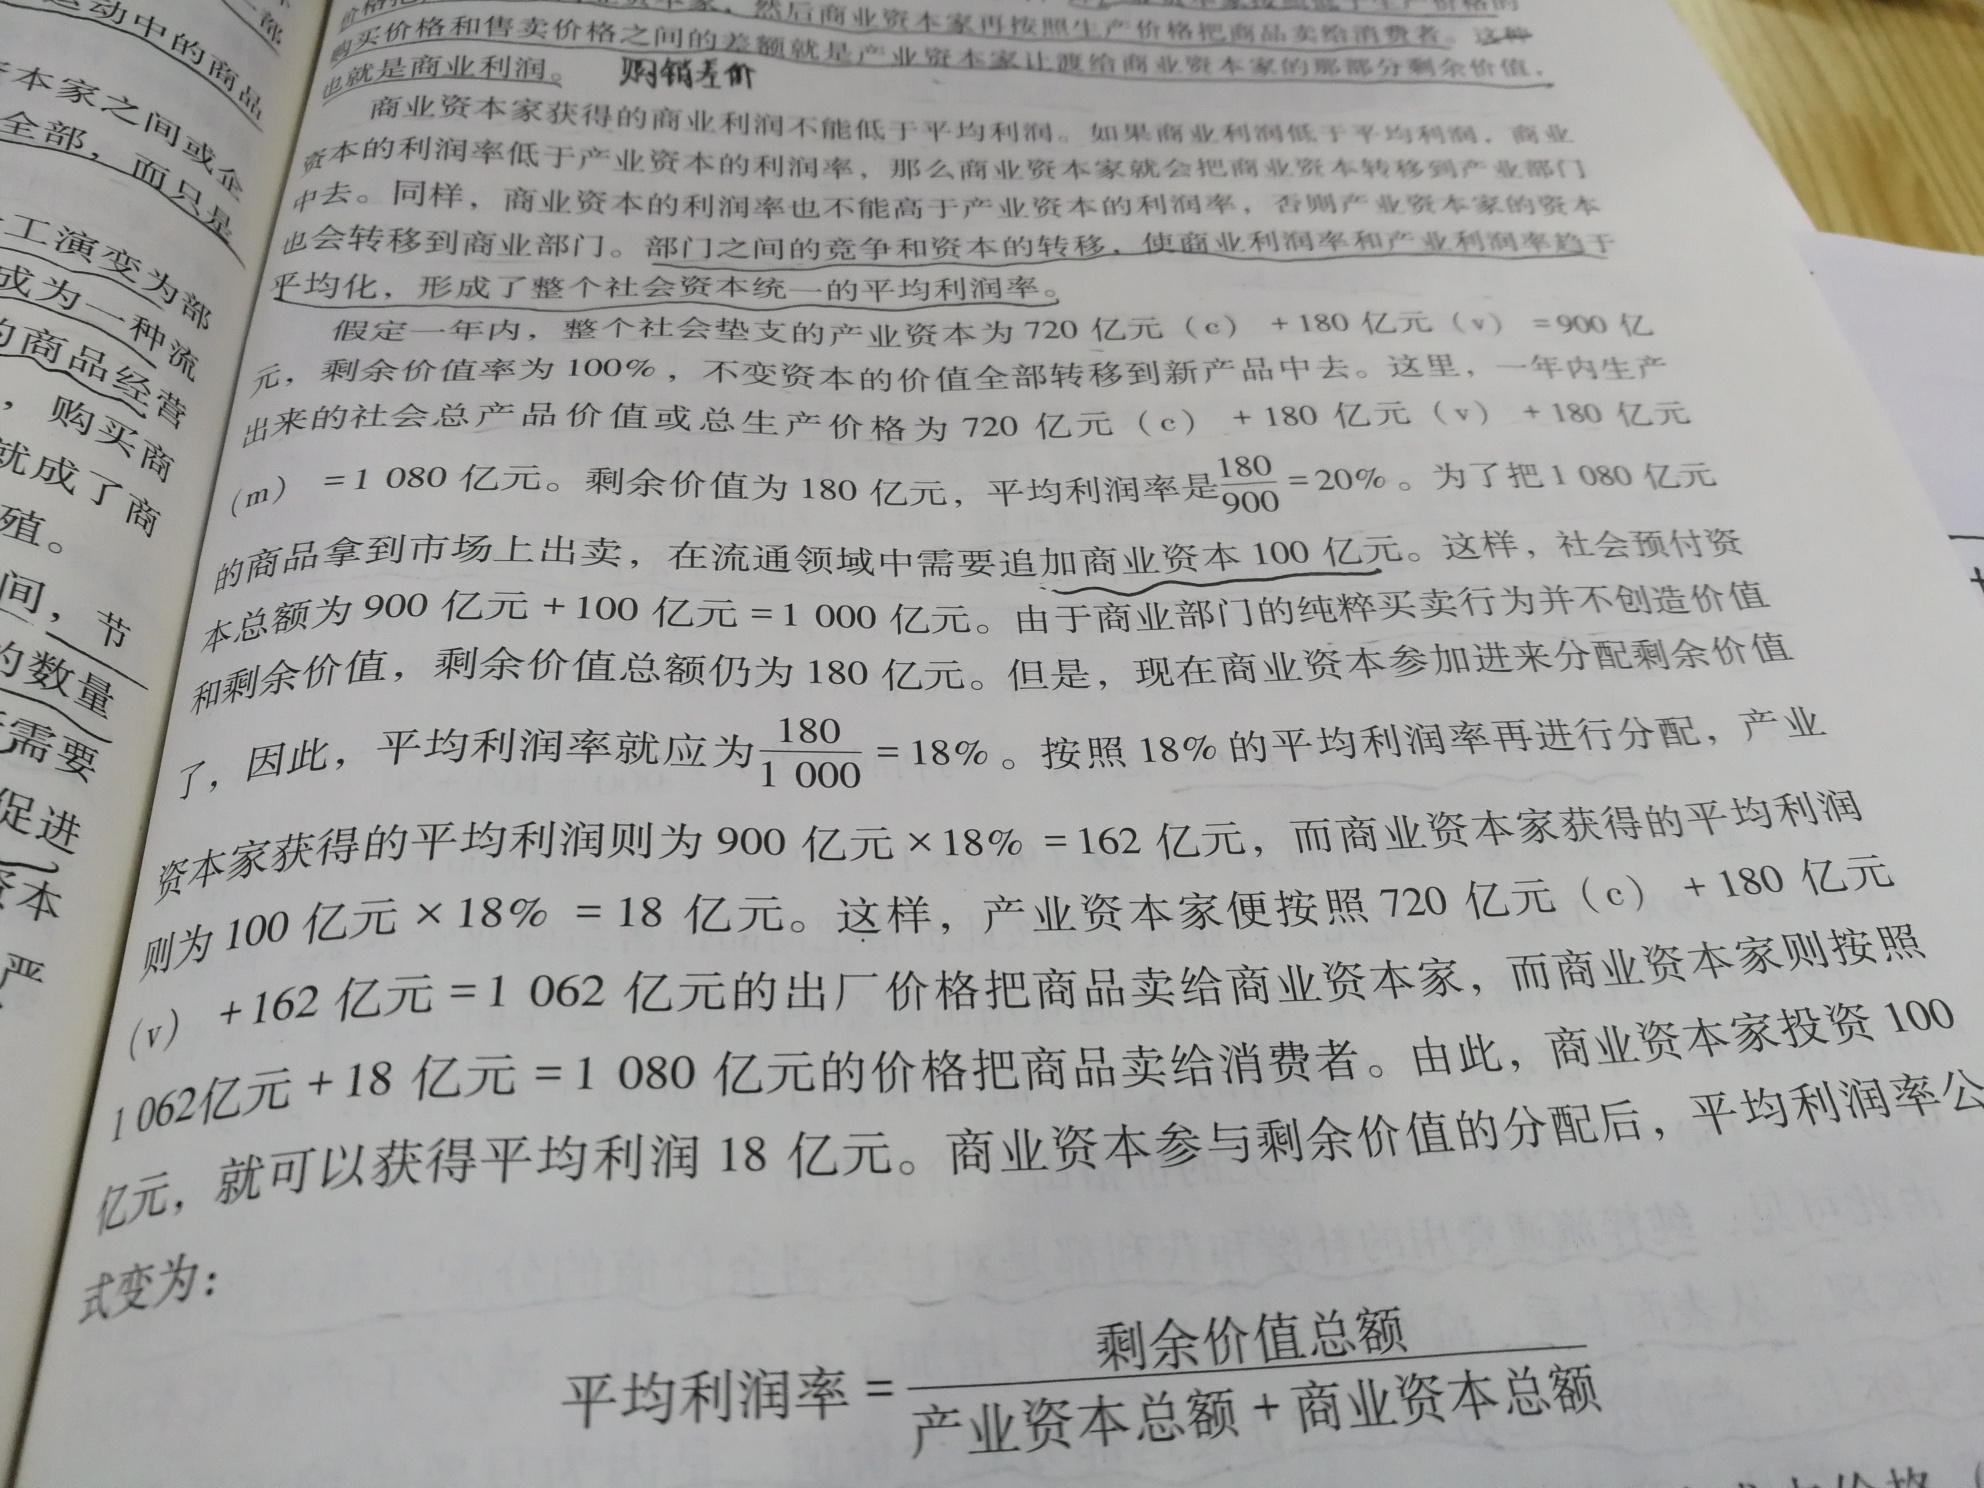 运动中的商品
资本家之间或企
全部，而只是
工演变为部
成为一种流
的商品经营
，购买商
就成了商
殖。
间，节
的数量
需要
促进
资本
严
然后商业资本家再按照生产价格把商品卖给消费者。这种
购买价格和售卖价格之间的差额就是产业资本家让渡给商业资本家的那部分剩余价值，
也就是商业利润。 购销差价
商业资本家获得的商业利润不能低于平均利润。如果商业利润低于平均利润，商业
资本的利润率低于产业资本的利润率，那么商业资本家就会把商业资本转移到产业部门
中去。同样，商业资本的利润率也不能高于产业资本的利润率，否则产业资本家的资本
也会转移到商业部门。部门之间的竞争和资本的转移，使商业利润率和产业利润率趋于
平均化，形成了整个社会资本统一的平均利润率。
假定一年内，整个社会垫支的产业资本为720亿元（c）+180亿元（v）=900亿
元，剩余价值率为100%，不变资本的价值全部转移到新产品中去。这里，一年内生产
出来的社会总产品价值或总生产价格为720亿元（c）+180亿元（v）+180亿元
（m）=1 080亿元。剩余价值为180亿元，平均利润率是180/900=20%。为了把1 080亿元
的商品拿到市场上出卖，在流通领域中需要追加商业资本100亿元。这样，社会预付资
本总额为900亿元+100亿元=1 000亿元。由于商业部门的纯粹买卖行为并不创造价值
和剩余价值，剩余价值总额仍为180亿元。但是，现在商业资本参加进来分配剩余价值
了，因此，平均利润率就应为180/1 000=18%。按照18%的平均利润率再进行分配，产业
资本家获得的平均利润则为900亿元×18%=162亿元，而商业资本家获得的平均利润
则为100亿元×18%=18亿元。这样，产业资本家便按照720亿元（c）+180亿元
（v）+162亿元=1 062亿元的出厂价格把商品卖给商业资本家，而商业资本家则按照
1 062亿元+18亿元=1 080亿元的价格把商品卖给消费者。由此，商业资本家投资100
亿元，就可以获得平均利润18亿元。商业资本参与剩余价值的分配后，平均利润率公
式变为：
平均利润率=剩余价值总额/产业资本总额+商业资本总额